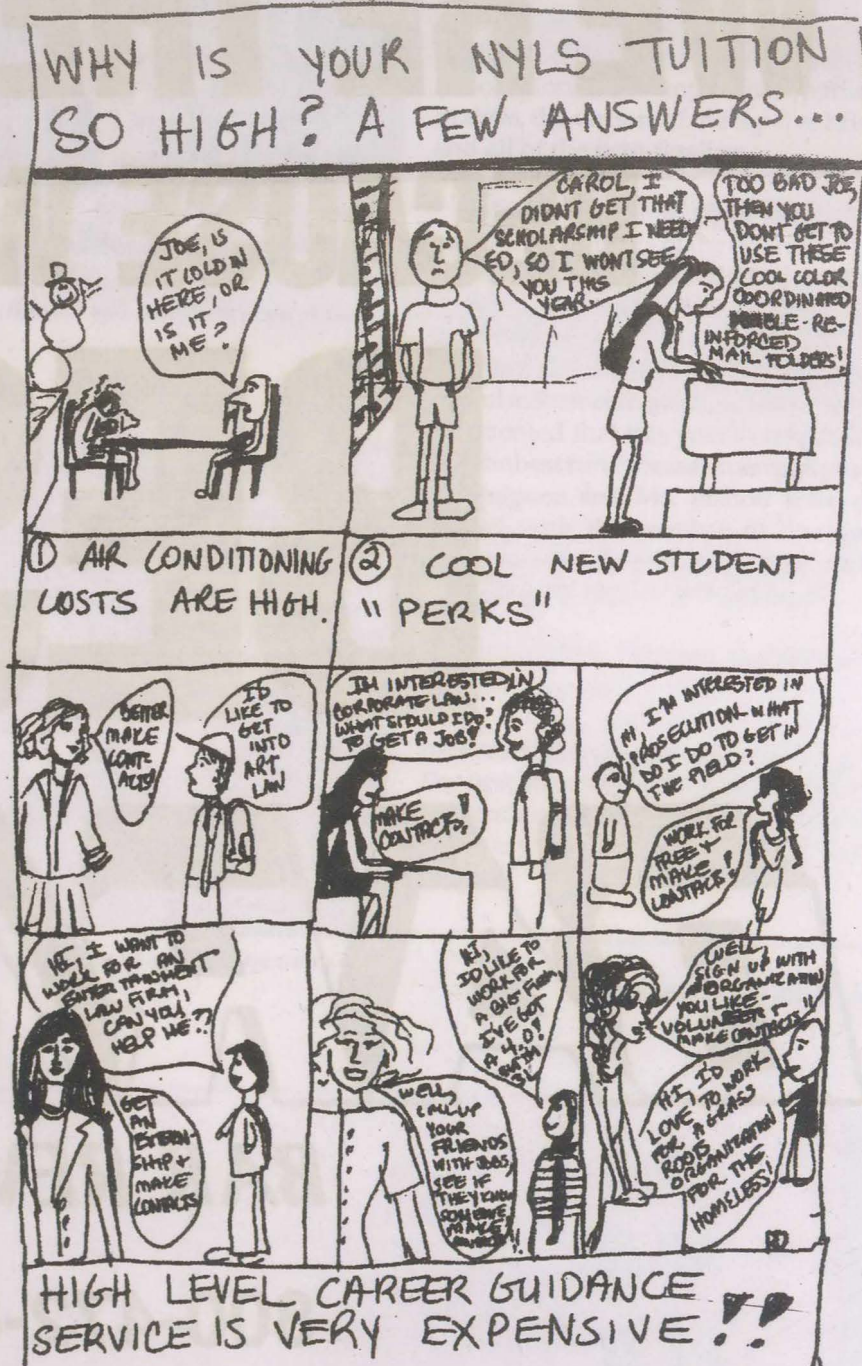 WHY IS YOUR NYLS TUITION
SO HIGH? A FEW ANSWERS...
JOE, IS
IT COLD IN
HERE, OR
IS IT
ME?
CAROL, I
DIDNT GET THAT
SCHOLARSHIP I NEED
ED, SO I WONT SEE
YOU THIS
YEAR.
TOO BAD JOE,
THEN YOU
DONT GET TO
USE THESE
COOL COLOR
COORDINATED
RE-
INFORCED
MAIL FOLDERS!
① AIR CONDITIONING
COSTS ARE HIGH.
② COOL NEW STUDENT
"PERKS"
I'D
LIKE TO
GET
INTO
ART
LAW
BETTER
MAKE
CONT-
ACTS!
I'M INTERESTED IN
CORPORATE LAW...
WHAT SHOULD I DO?
TO GET A JOB?
MAKE
CONTACTS!
HI, I'M INTERESTED IN
PROSECUTION-WHAT
DO I DO TO GET IN
THE FIELD?
WORK FOR
FREE +
MAKE
CONTACTS!
HI, I WANT TO
WORK FOR AN
ENTERTAINMENT
LAW FIRM,
CAN YOU
HELP ME??
GET
AN
EXTERN-
SHIP +
MAKE
CONTACTS
HI,
I'D LIKE TO
WORK FOR
A BIG FIRM,
I'VE GOT
A 4.0!
WELL,
CALL UP
YOUR
FRIENDS
WITH JOBS,
SEE IF
THEY KNOW
SOMEONE,
MAKE
HI, I'D
LOVE TO WORK
FOR A GRASS
ROOTS
ORGANIZATION
FOR THE
HOMELESS!
WELL,
SIGN UP WITH
ORGANIZATION
YOU LIKE-
VOLUNTEER +
MAKE CONTACTS"
HIGH LEVEL CAREER GUIDANCE
SERVICE IS VERY EXPENSIVE!!